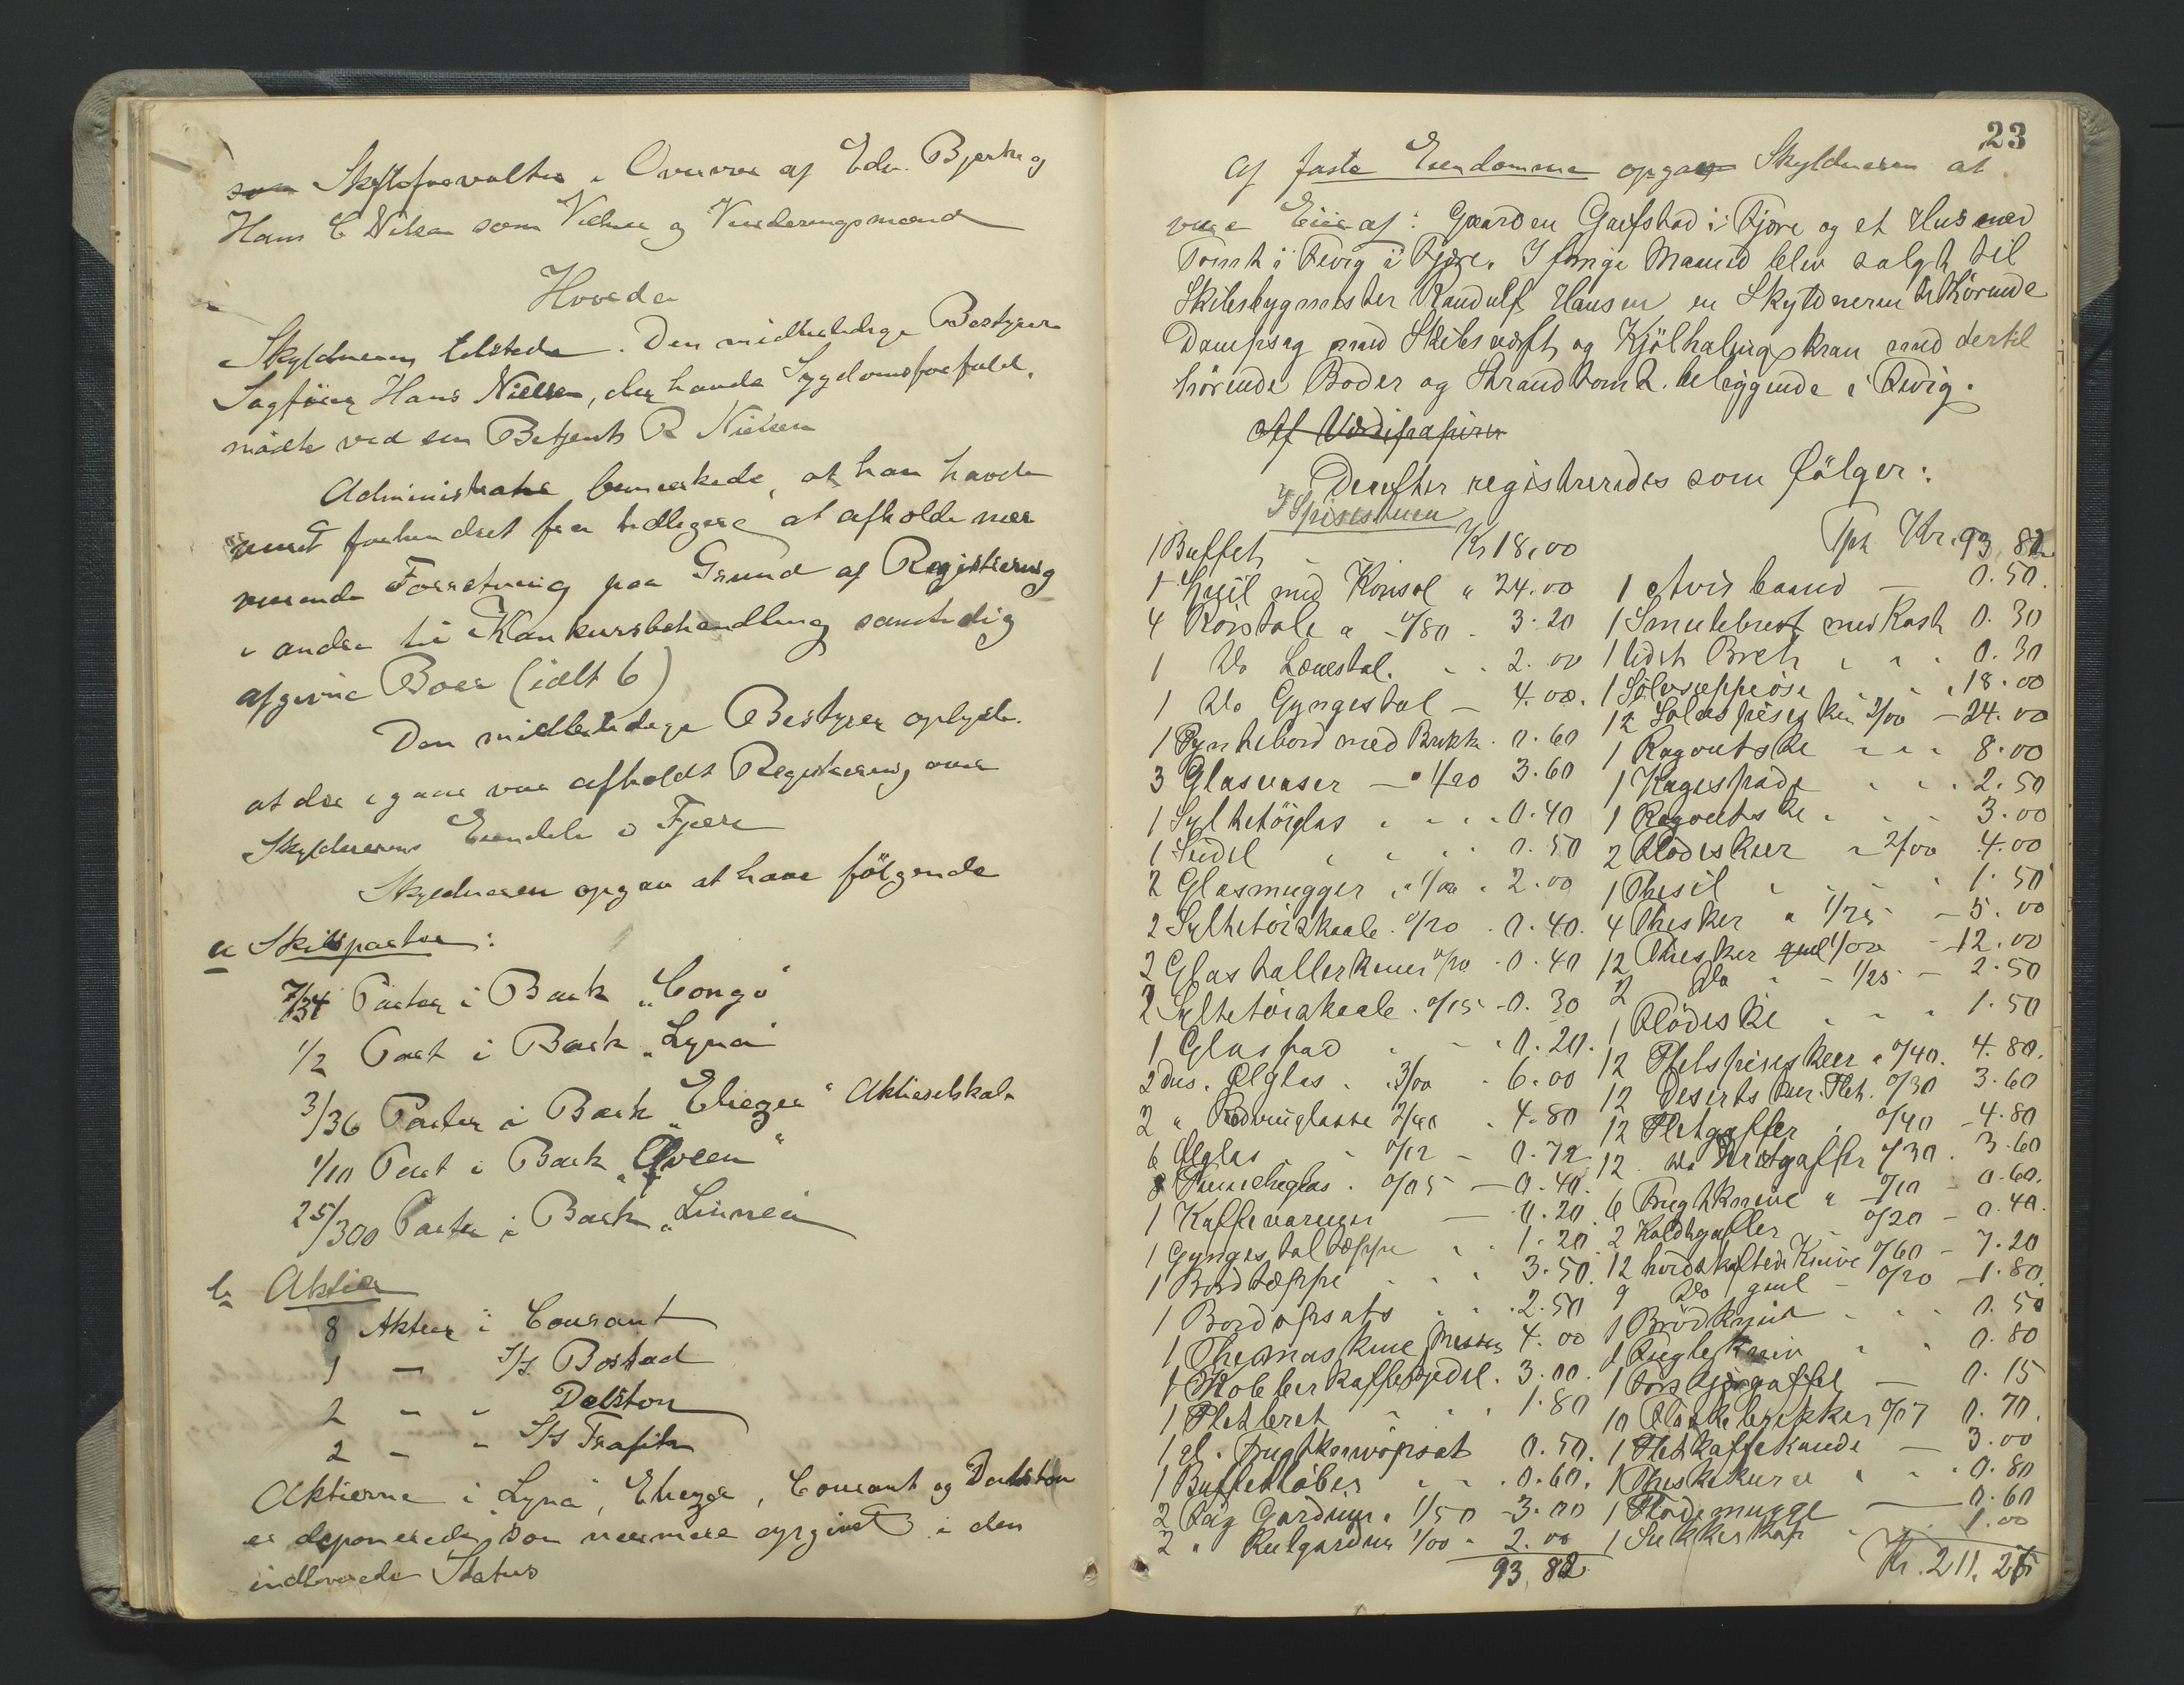 Skifteforvalter i Overvær af Edv. Bjerke og
Hans C Nilsen som Vidner og Vurderingsmænd
Hvorda
Skyldneren tilstede. Den midlertidige Bestyrer
Sagfører Hans Nielsen, der havde Sygdomsforfald,
mødte ved sin Betjent R Nielsen
Administrator bemærkede, at han havde
været forhindret fra tidligere at afholde nær
værende Forretning paa Grund af Registrering
i andre til Konkursbehandling samtidig
afgivne Boer (ialt 6)
Den midlertidige Bestyrer oplyste
at der igaar var afholdt Registrering over
Skyldnerens Eiendele i Fjære
Skyldneren opgav at have følgende
a Skibsparter:
7/34 Parter i Bark „Congo"
1/2 Part i Bark „Lyna"
3/36 Parter i Bark „Eliezer" Aktieselskab
1/10 Part i Bark „Qveen"
25/300 Parter i Bark „Linnea"
b Aktier
8 Aktier i Courant
1 — S/S. Bostad
2 - - Dalston
2 - - S/S Trafik
Aktierne i Lyna, Eliezer, Courant og Dalston
er deponerede, som nærmere opgivet i den
indleverede Status
23
Af faste Eiendomme opgav Skyldneren at
være Eier af: Gaarden Grefstad i Fjære og et Hus med
Tomt i Fevig i Fjære. I forrige Maaned blev solgt til
Skibsbygmester Randulf Hansen en Skyldneren tilhørende
Dampsag med Skibsværft og Kjølhalingskran med dertil
hørende Boder og Strandtomt beliggende i Fevig.
Af Værdipapirer
Derefter registreredes som følger:
I Spisestuen
1 Buffet Kr 18,00
1 Speil med Konsol " 24.00
4 Rørstole a 0/80 - 3.20
1 Do Lænestol - - 2.00
1 Do Gyngestol - 4.00.
1 Pyntebord med Brikke. 0.60
3 Glasvaser — a 1/20 3.60
1 Syltetøiglas - - - 0.40
1 Seidel - - - 0.50
2 Glasmugger a 1/00 - 2.00
2 Syltetøiskaale 0/20 - 0.40.
2 Glastallerkener 0/20 - 0.40
2 Syltetøiskaale 0/15 - 0.30
1 Glasfad - - 0.20.
2 Dus. Ølglas - 3/00 - 6.00
2 " Rødvinglasse 2/40 - 4.80
6 Ølglas - 0/12 - 0.72
8 Punscheglas. 0/05 — 0.40.
1 Kaffevarmer — 0.20
1 Gyngestoltæppe - 1.20
1 Bordtæppe - - - 3.50.
1 Bordopsats - - 2.50
1 Themaskine Messing 4.00
1 Kobber kaffekjedel. 3.00.
1 Pletbret - - - 1.80
1 gl. Frugtkurvopsat 0.50.
1 Buffetløber - - 0.60.
2 Fag Gardiner 1/50 - 3.00
2 " Rulgardiner 1/00 - 2.00
93,82
Tpt Kr. 93,82
1 Avisbaand — 0.50.
1 Smulebret med Kost 0.30
1 lidet Bret - - - 0.30
1 Sølvsuppeøse - - 18.00
12 Sølvspiseskeer 2/00 - 24.00
1 Ragoutske - - - 8.00
1 Kagespade - - - 2.50
1 Ragoutske - - - 3.00
2 Flødeskeer a 2/00 4.00
1 Thesil - - - 1.50
4 Theskeer a 1/25 - 5.00
12 Theskeer 1/00 - 12.00
2 Do - - 1/25 - 2.50
1 Flødeske - - - 1.50
12 Pletspiseskeer a 0/40. 4.80.
12 Desertskeer. Plet. 0/30 3.60
12 Pletgafler - 0/40 - 4.80
12 Do Desertgafler 0/30. 3.60
6 Frugtknive a 0/10 - 0.60.
2 Koldtgafler - 0/20 - 0.40.
12 hvidskaftede Knive 0/60 - 7.20
9 Do gml - 0/20 - 1.80.
1 Brødkniv - - - 0.50
1 Fuglekniv - - 0.80
1 Forskjærgaffel — 0.15
10 Flaskebrikker 0/07 0.70.
1 Pletkaffekande — 3.00
1 Theskekurv - - 0.80
1 Flødemugge — 0.60
1 Sukkerkop - 1.00
Kr. 211,27